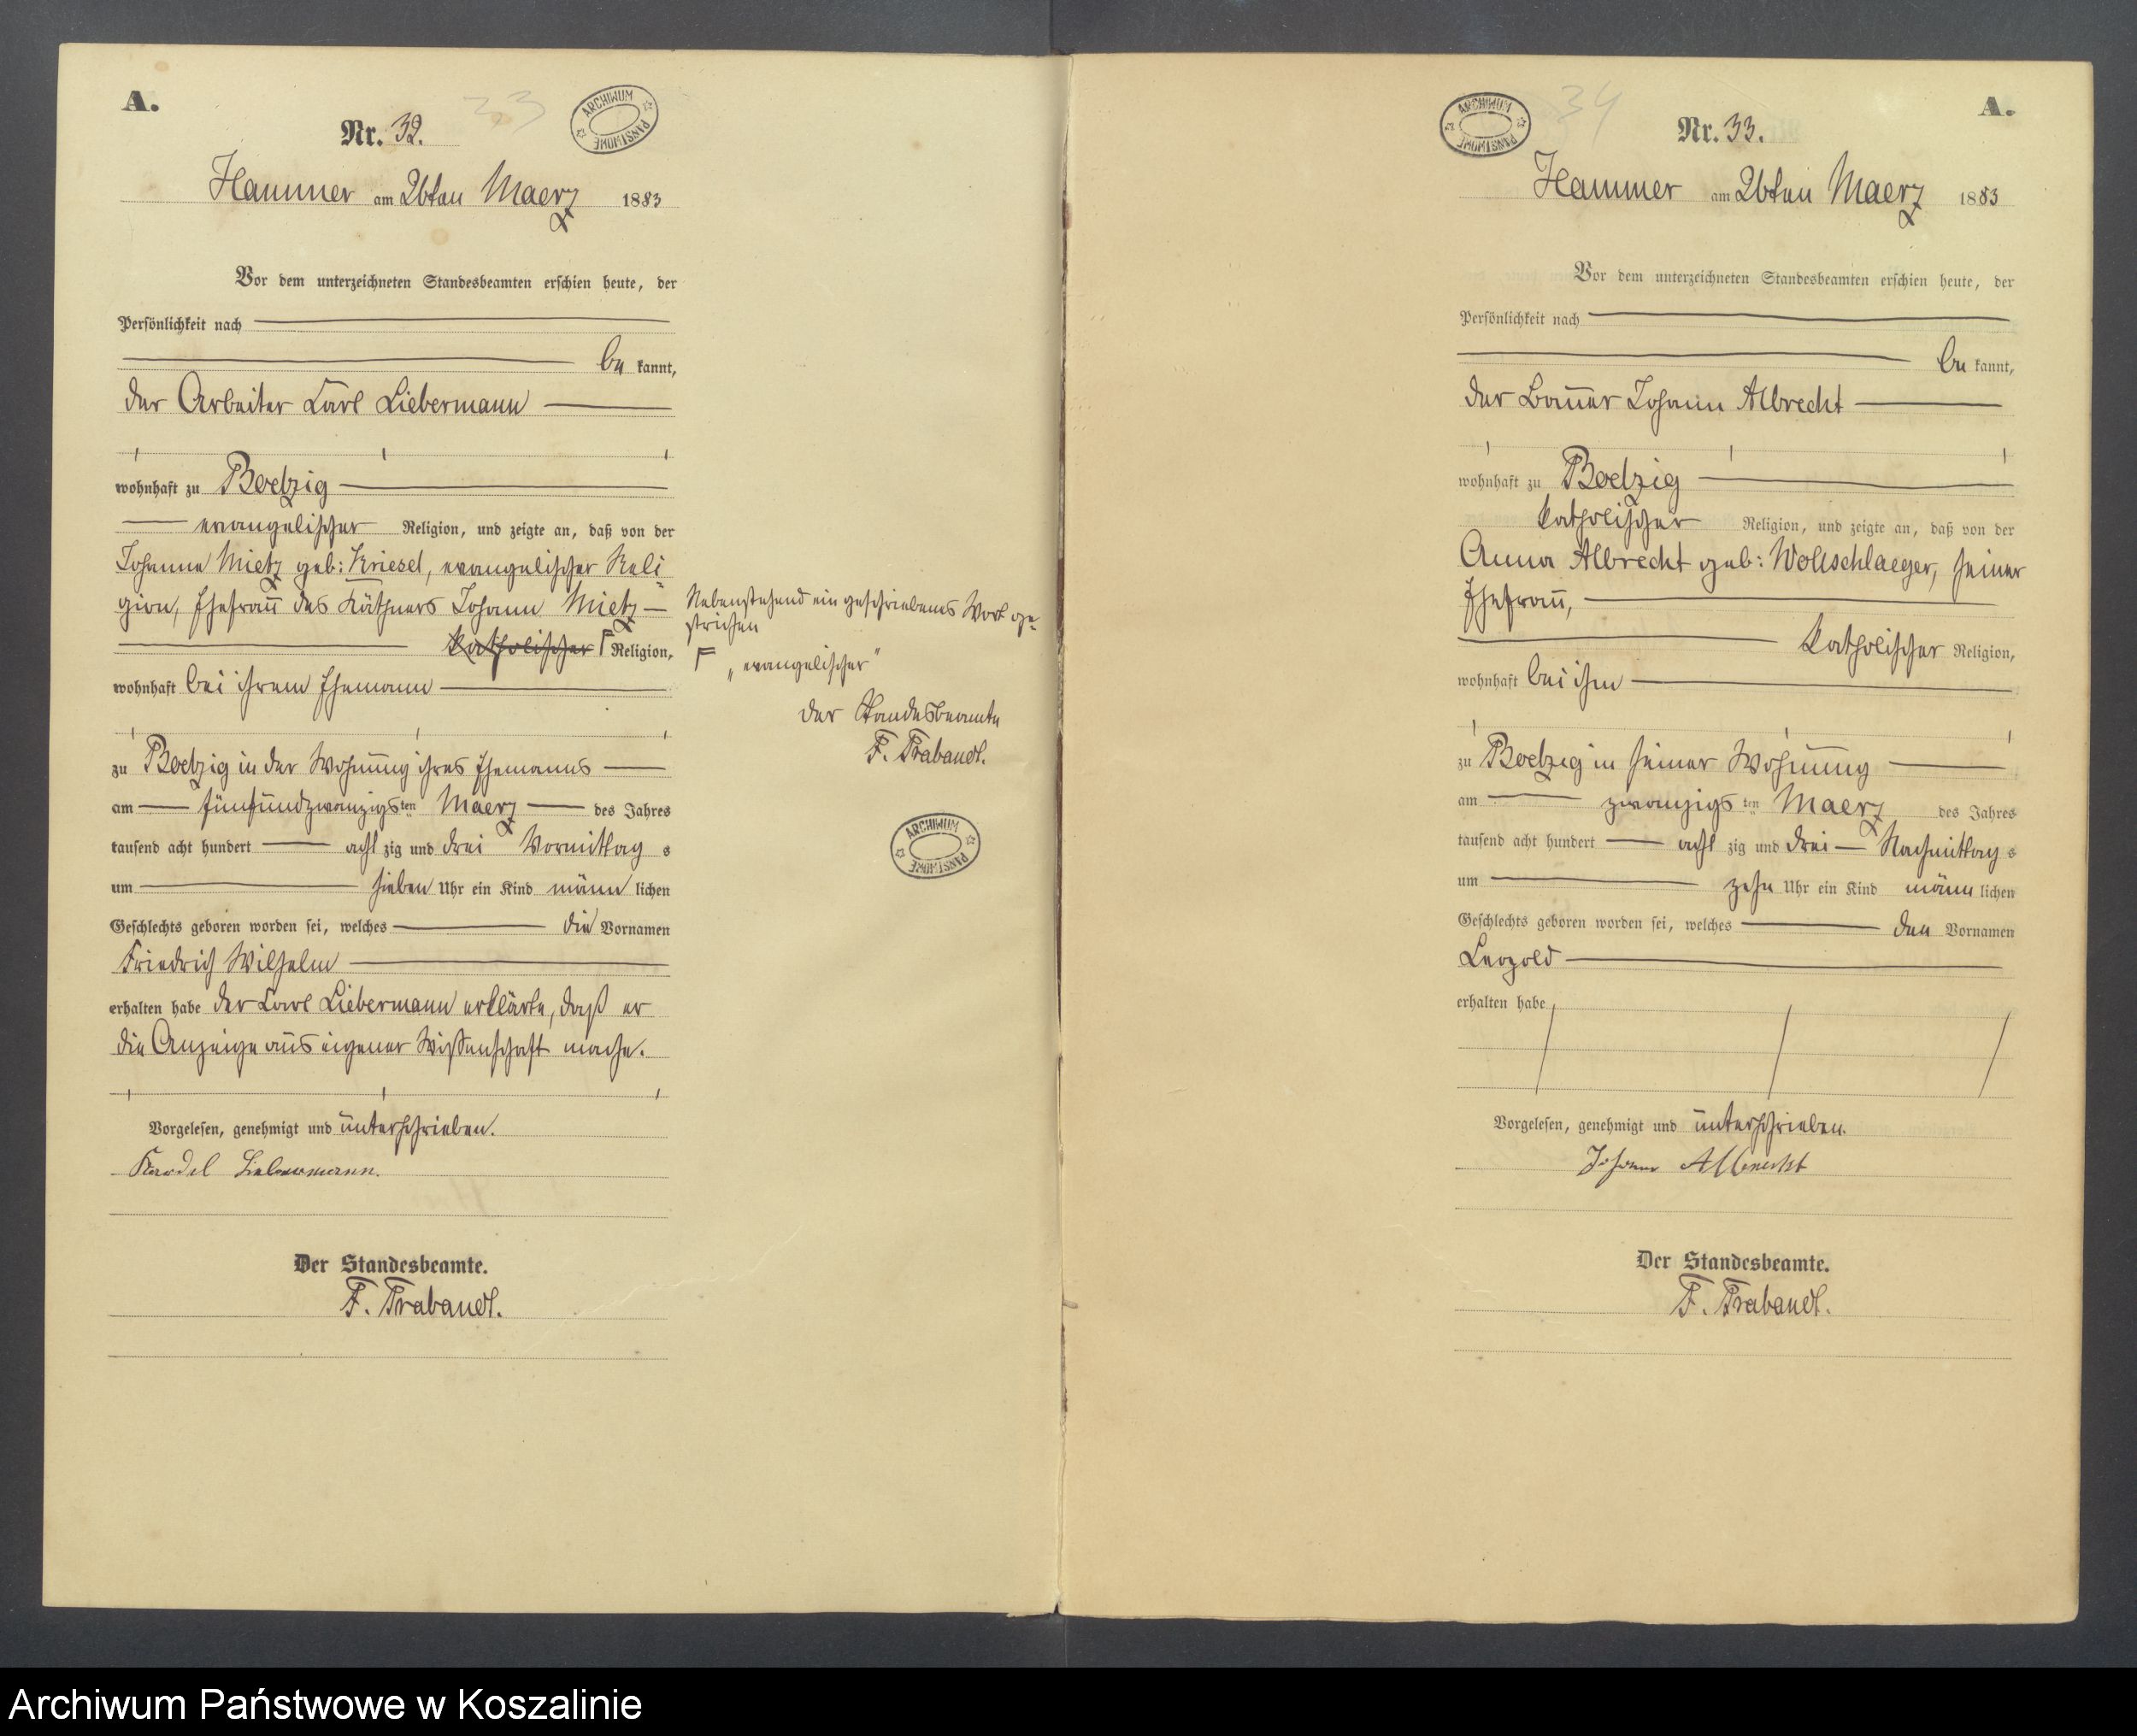 A.
33
ARCHIWUM PAŃSTWOWE
Nr. 32.
Hammer am 26ten Maerz 1883
Vor dem unterzeichneten Standesbeamten erschien heute, der
Persönlichkeit nach
be kannt,
der Arbeiter Carl Liebermann
wohnhaft zu Boetzig
evangelischer Religion, und zeigte an, daß von der
Johanna Mietz geb: Kriesel, evangelischer Reli
gion, Ehefrau des Käthners Johann Mietz
katholischer F Religion,
wohnhaft bei ihrem Ehemann
zu Boetzig in der Wohnung ihres Ehemannes
am fünfundzwanzigsten Maerz des Jahres
tausend acht hundert acht zig und drei Vormittag s
um sieben Uhr ein Kind männ lichen
Geschlechts geboren worden sei, welches die Vornamen
Friedrich Wilhelm
erhalten habe der Carl Liebermann erklärte, daß er
die Anzeige aus eigener Wissenschaft mache.
Vorgelesen, genehmigt und unterschrieben.
Liebermann.
Der Standesbeamte.
F. Trabandt.
Nebenstehend ein geschriebenes Wort ge-
strichen
F „evangelischer"
Der Standesbeamte
F. Trabandt.
ARCHIWUM PAŃSTWOWE
ARCHIWUM PAŃSTWOWE
34
A.
Nr. 33.
Hammer am 26ten Maerz 1883
Vor dem unterzeichneten Standesbeamten erschien heute, der
Persönlichkeit nach
be kannt,
der Bauer Johann Albrecht
wohnhaft zu Boetzig
katholischer Religion, und zeigte an, daß von der
Anna Albrecht geb: Wollschlaeger, seiner
Ehefrau,
katholischer Religion,
wohnhaft bei ihm
zu Boetzig in seiner Wohnung
am zwanzigsten Maerz des Jahres
tausend acht hundert acht zig und drei Nachmittag s
um zehn Uhr ein Kind männ lichen
Geschlechts geboren worden sei, welches den Vornamen
Leopold
erhalten habe
Vorgelesen, genehmigt und unterschrieben.
Johann Albrecht
Der Standesbeamte.
F. Trabandt.
Archiwum Państwowe w Koszalinie